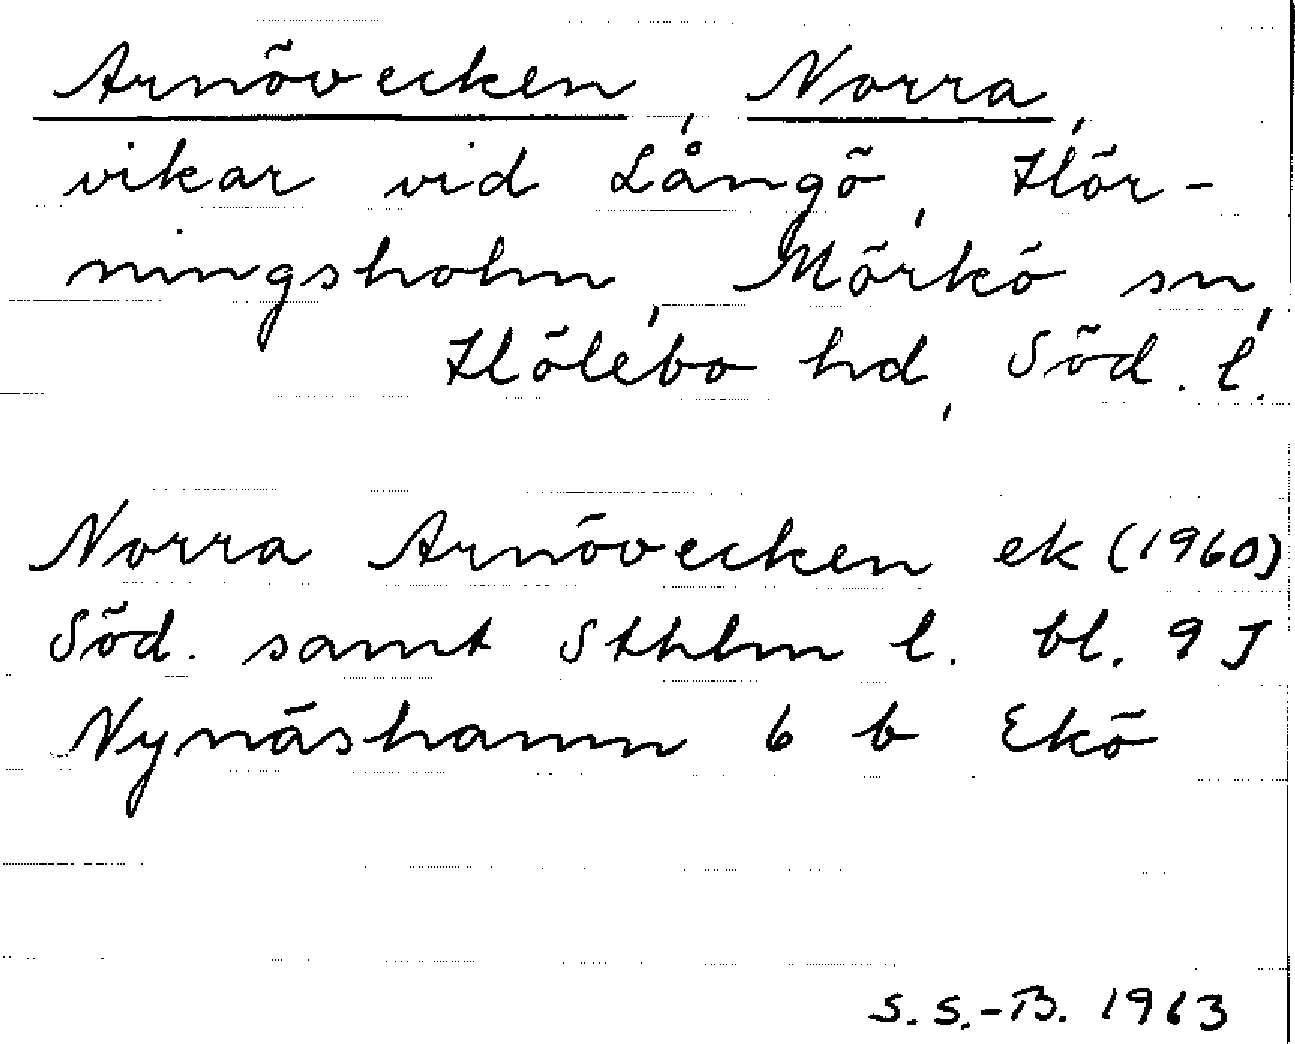 Arnövecken, Norra,
vikar vid Långö, Hör-
ningsholm, Mörkö sn,
Hölebo hd, Söd. l.
Norra Arnövecken ek (1960)
Söd. samt Sthlm l. bl. 9 J
Nynäshamn 6 b Ekö
S. S.-B. 1963